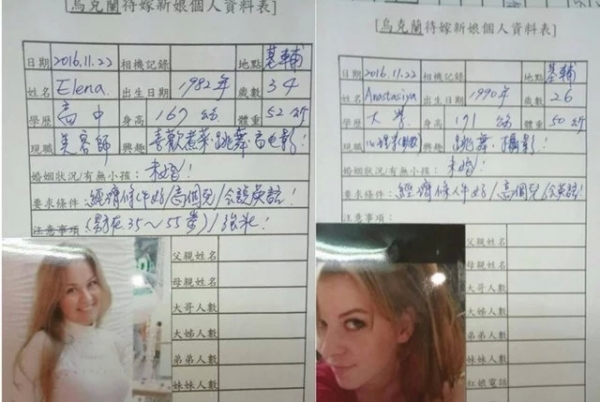 [烏克蘭待嫁新娘個人資料表]
日期 2016.11.22 相機記錄 地點 基輔
姓名 Elena. 出生日期 1982年 歲數 34
學歷 高中 身高 169公分 體重 52公斤
現職 美容師 興趣 喜歡煮菜、跳舞、看电影!
婚姻狀況/有無小孩: 未婚!
要求條件: 經濟條件好/高個兒/会說英語!
注意事項 (男在35~55歲)/強壯!
父親姓名
母親姓名
大哥人數
大姊人數
弟弟人數
妹妹人數
[烏克蘭待嫁新娘個人資料表]
日期 2016.11.22 相機記錄 地點 基輔
姓名 Anastasiya 出生日期 1990年 歲數 26
學歷 大學 身高 171公分 體重 50公斤
現職 心理學 興趣 跳舞、攝影!
婚姻狀況/有無小孩: 未婚!
要求條件: 經濟條件好/高個兒/会英語!
注意事項:
父親姓名
母親姓名
大哥人數
大姊人數
弟弟人數
妹妹人數
紅娘電話